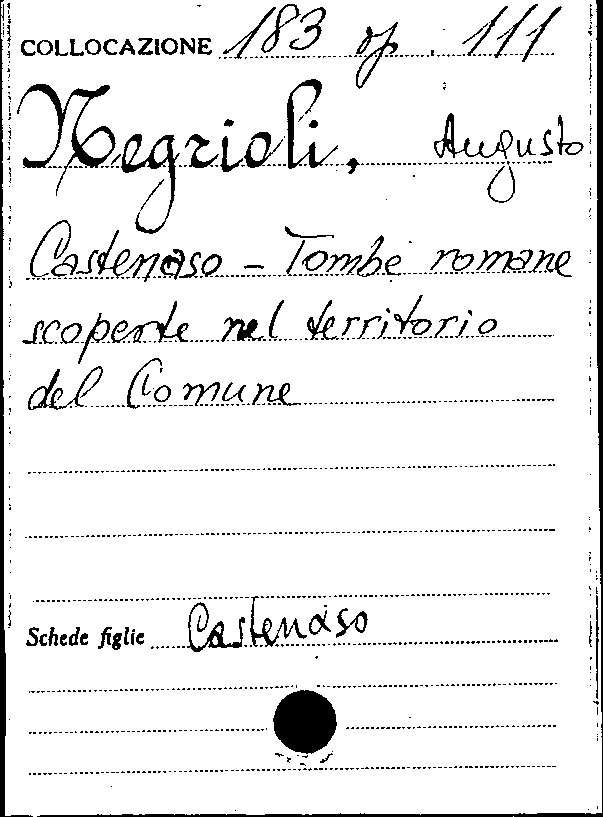 COLLOCAZIONE 183 op. 111
Negrioli, Augusto
Castenaso - Tombe romane
scoperte nel territorio
del Comune
Schede figlie Castenaso